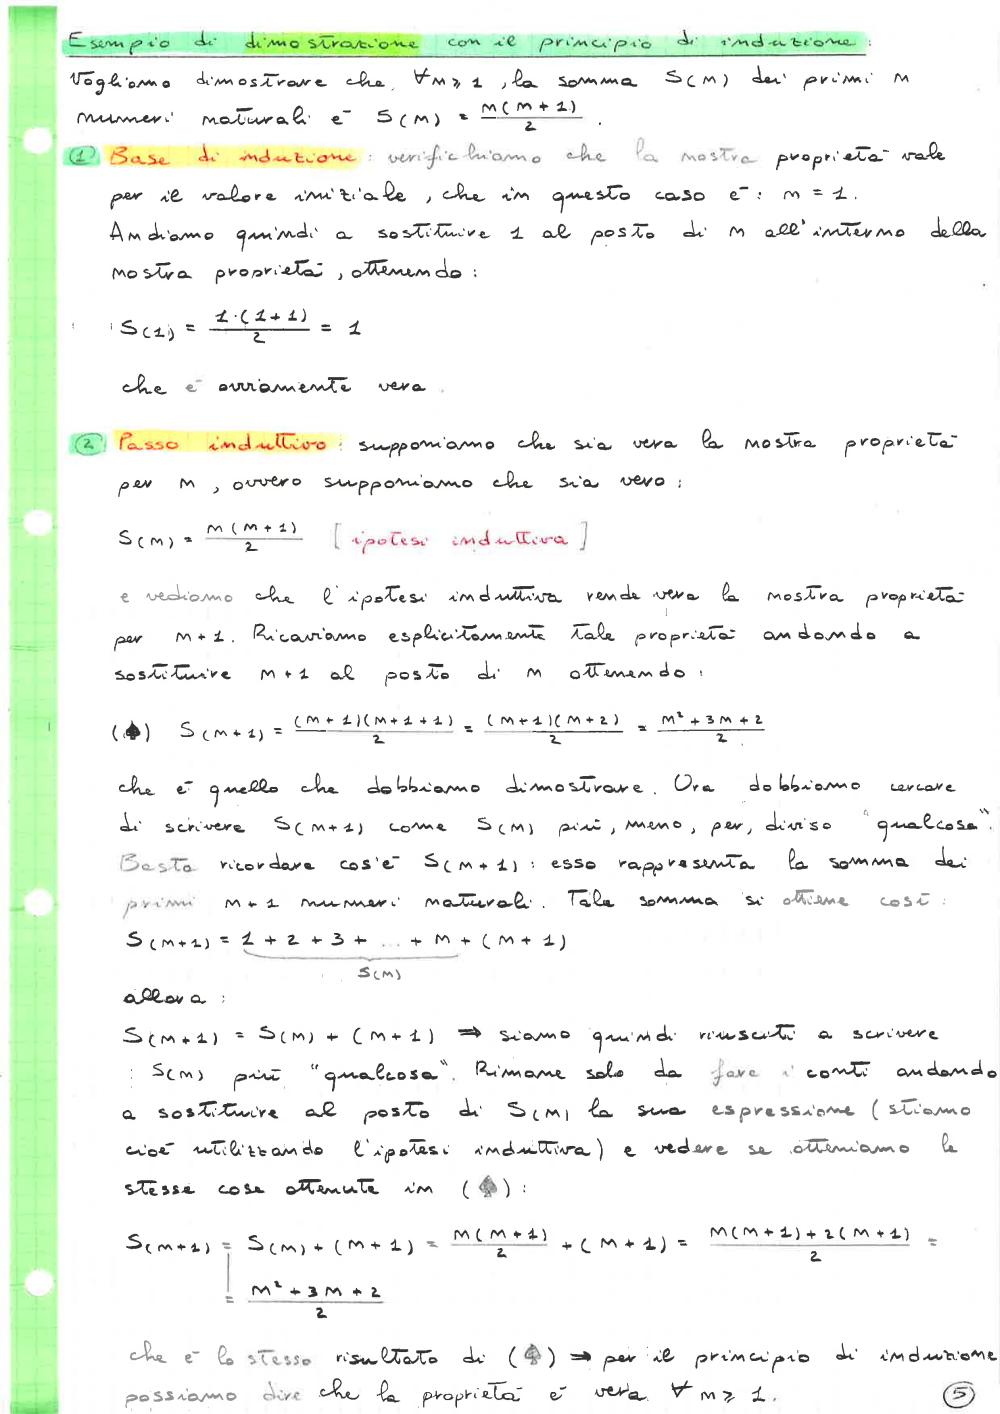 Esempio di dimostrazione con il principio di induzione:
Vogliamo dimostrare che, ∀n ≥ 1, la somma S(n) dei primi n
numeri naturali è S(n) = n(n+1)/2.
① Base di induzione: verifichiamo che la nostra proprietà vale
per il valore iniziale, che in questo caso è: n = 1.
Andiamo quindi a sostituire 1 al posto di n all'interno della
nostra proprietà, ottenendo:
S(1) = 1·(1+1)/2 = 1
che è ovviamente vera.
② Passo induttivo: supponiamo che sia vera la nostra proprietà
per n, ovvero supponiamo che sia vero:
S(n) = n(n+1)/2 [ipotesi induttiva]
e vediamo che l'ipotesi induttiva rende vera la nostra proprietà
per n+1. Ricaviamo esplicitamente tale proprietà andando a
sostituire n+1 al posto di n ottenendo:
(♠) S(n+1) = (n+1)(n+1+1)/2 = (n+1)(n+2)/2 = n²+3n+2/2
che è quello che dobbiamo dimostrare. Ora dobbiamo cercare
di scrivere S(n+1) come S(n) più, meno, per, diviso "qualcosa".
Basta ricordare cos'è S(n+1): esso rappresenta la somma dei
primi n+1 numeri naturali. Tale somma si ottiene così:
S(n+1) = 1 + 2 + 3 + ... + n + (n+1)
S(n)
allora:
S(n+1) = S(n) + (n+1) ⇒ siamo quindi riusciti a scrivere
S(n) più "qualcosa". Rimane solo da fare i conti andando
a sostituire al posto di S(n) la sua espressione (stiamo
cioè utilizzando l'ipotesi induttiva) e vedere se otteniamo le
stesse cose ottenute in (♠):
S(n+1) = S(n) + (n+1) = n(n+1)/2 + (n+1) = n(n+1)+2(n+1)/2 =
= n²+3n+2/2
che è lo stesso risultato di (♠) ⇒ per il principio di induzione
possiamo dire che la proprietà è vera ∀n ≥ 1.
5